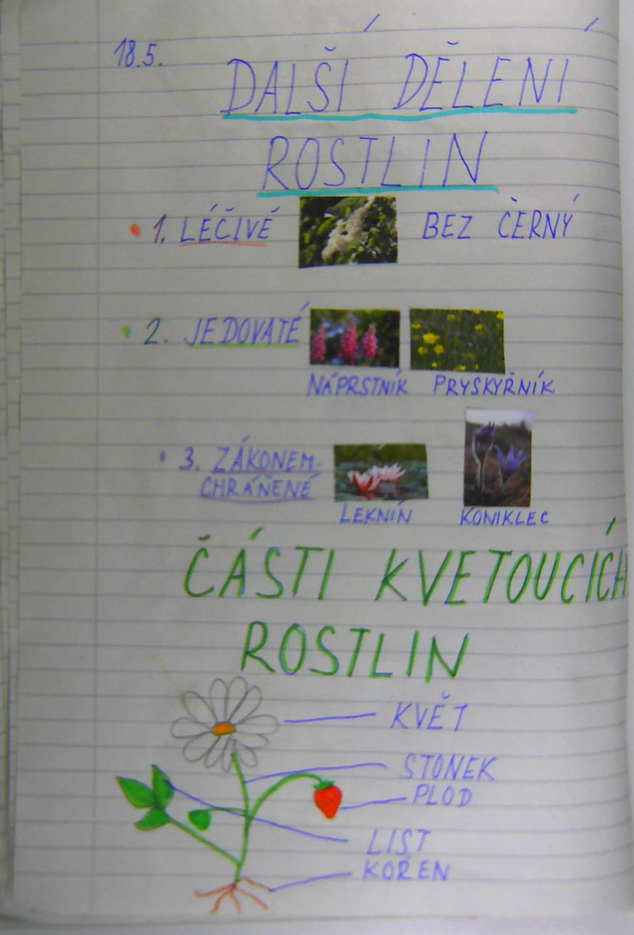 18.5.
DALŠÍ DĚLENÍ
ROSTLIN
1. LÉČIVÉ BEZ ČERNÝ
2. JEDOVATÉ
NÁPRSTNÍK PRYSKYŘNÍK
3. ZÁKONEM
CHRÁNĚNÉ
LEKNÍN KONIKLEC
ČÁSTI KVETOUCÍCH
ROSTLIN
KVĚT
STONEK
PLOD
LIST
KOŘEN